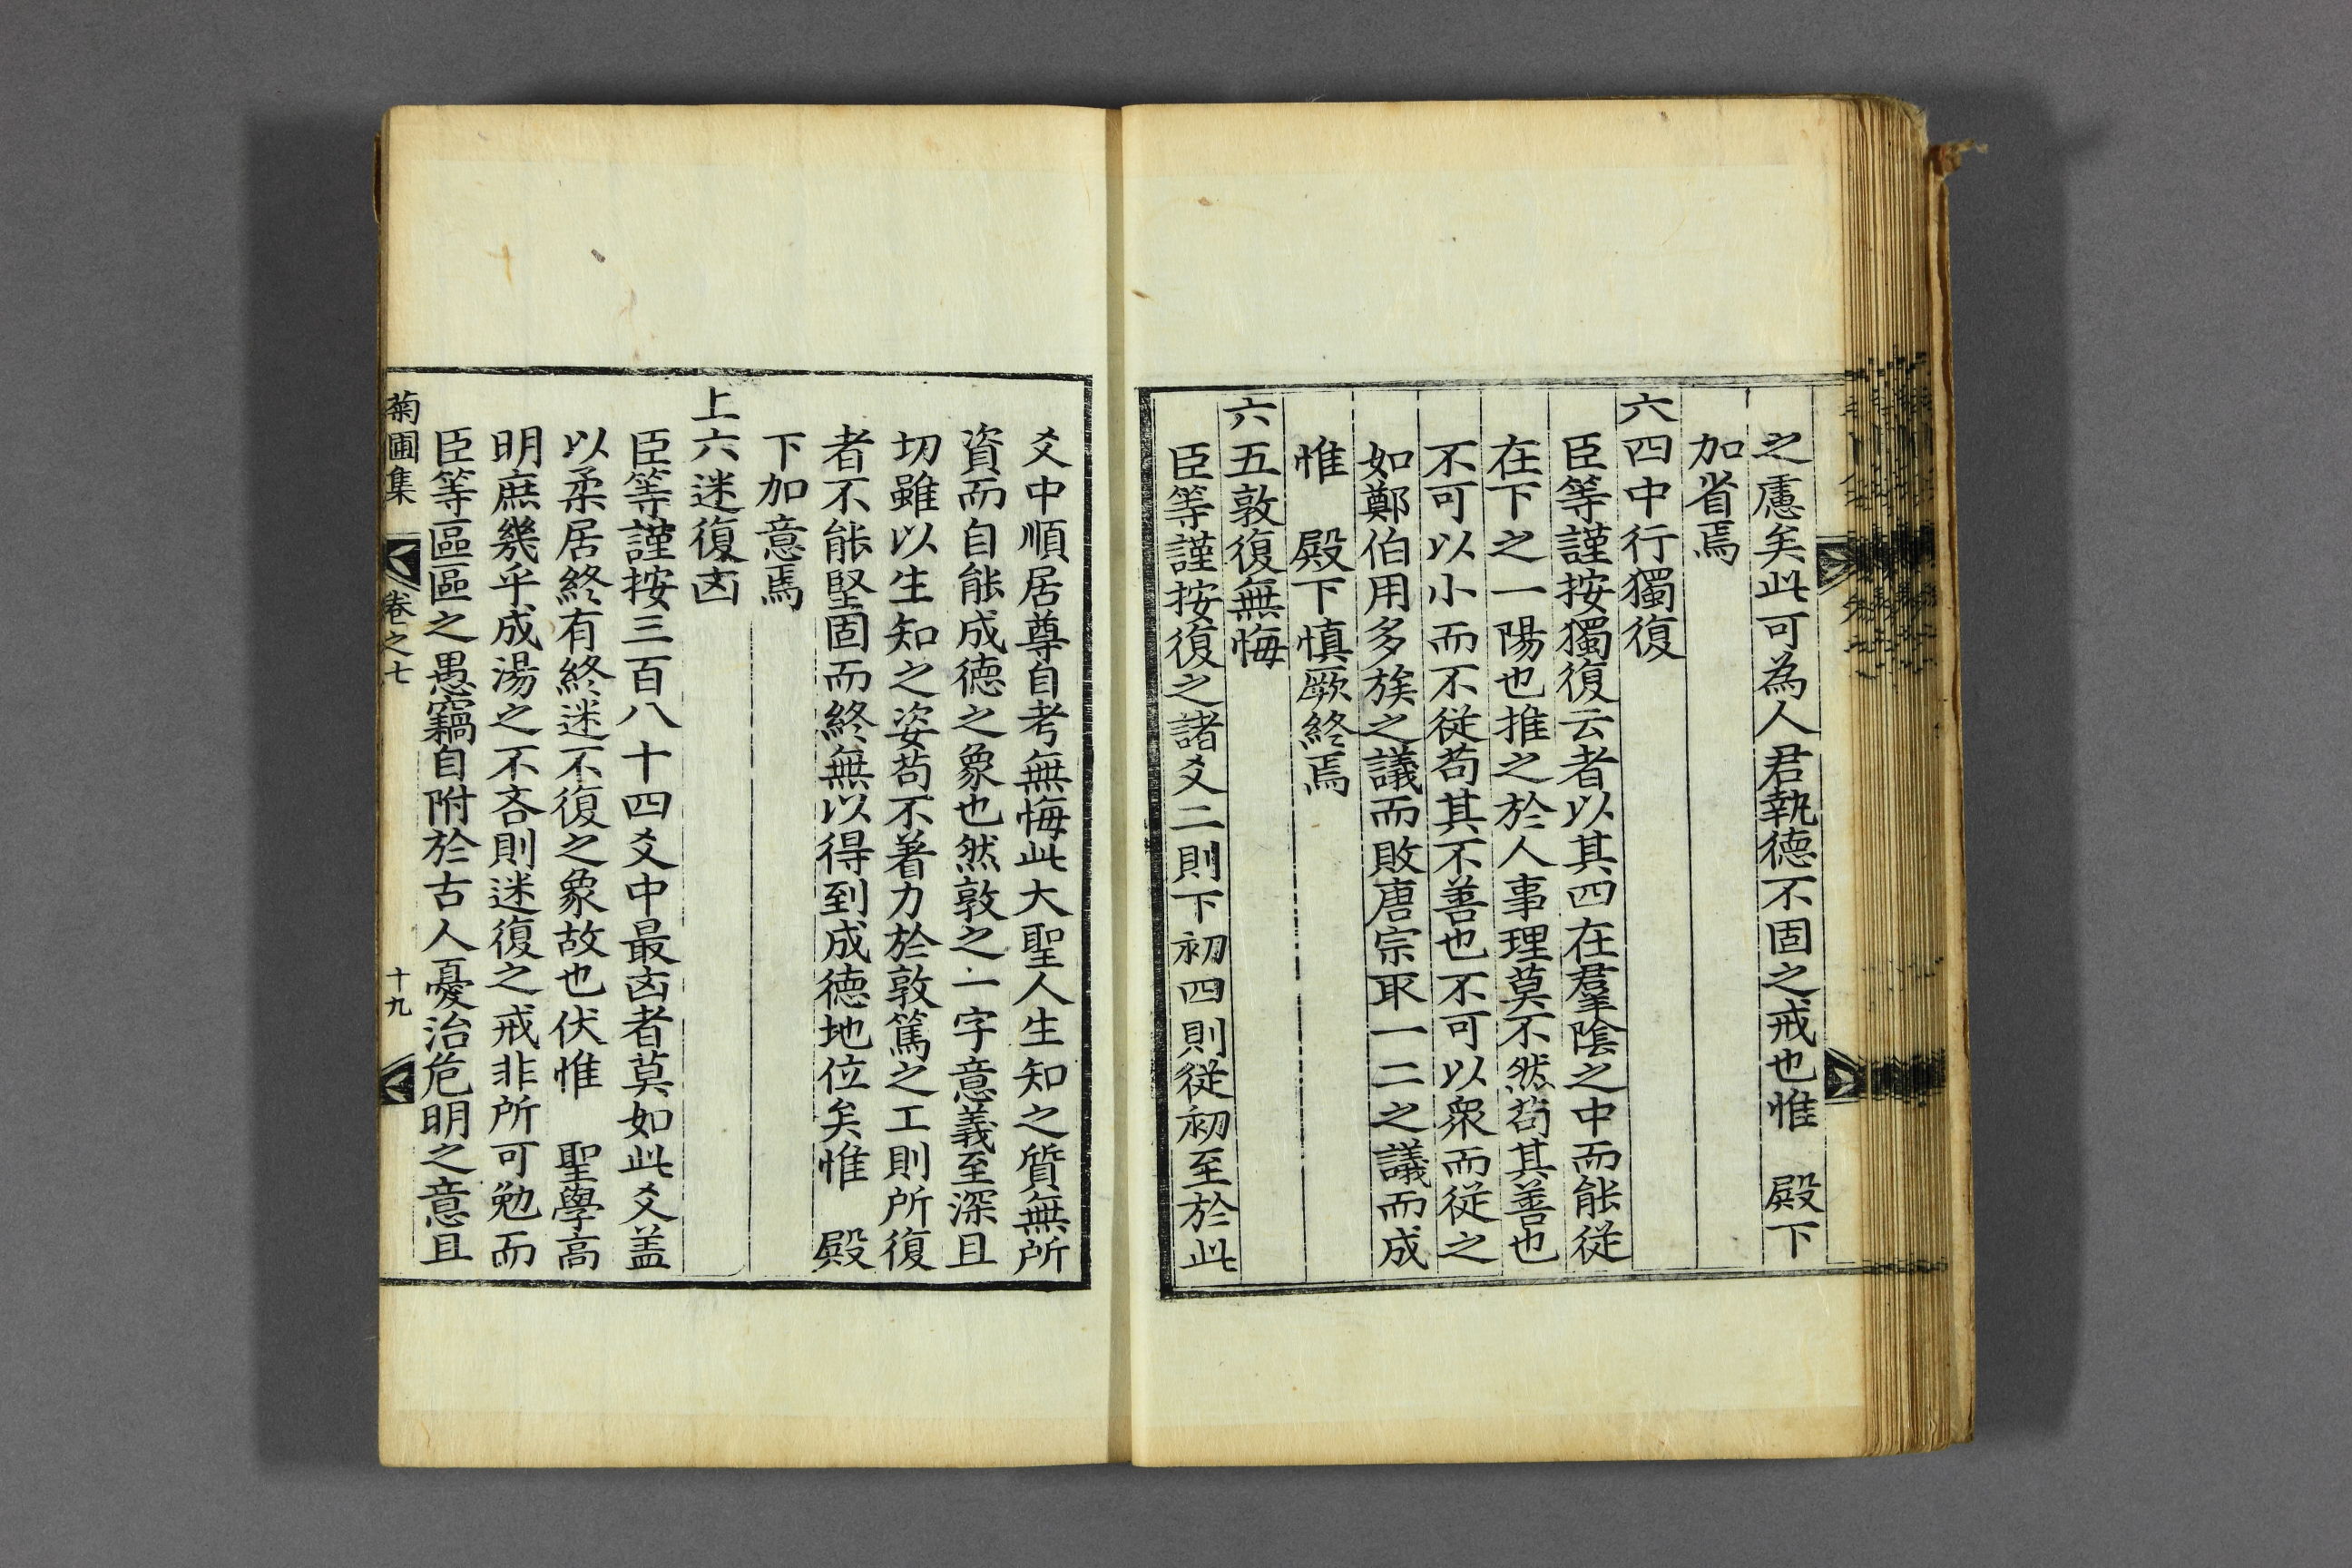 之慮矣此可為人君執德不固之戒也惟　殿下
加省焉
六四中行獨復
臣等謹按獨復云者以其四在羣陰之中而能從
在下之一陽也推之於人事理莫不然苟其善也
不可以小而不從苟其不善也不可以衆而從之
如鄭伯用多族之議而敗唐宗取一二之議而成
惟　殿下慎厥終焉
六五敦復無悔
臣等謹按復之諸爻二則下初四則從初至於此
爻中順居尊自考無悔此大聖人生知之質無所
資而自能成德之象也然敦之一字意義至深且
切雖以生知之姿苟不着力於敦篤之工則所復
者不能堅固而終無以得到成德地位矣惟　殿
下加意焉
上六迷復凶
臣等謹按三百八十四爻中最凶者莫如此爻盖
以柔居終有終迷不復之象故也伏惟　聖學高
明庶幾乎成湯之不吝則迷復之戒非所可勉而
臣等區區之愚竊自附於古人憂治危明之意且
菊圃集　卷之七　十九